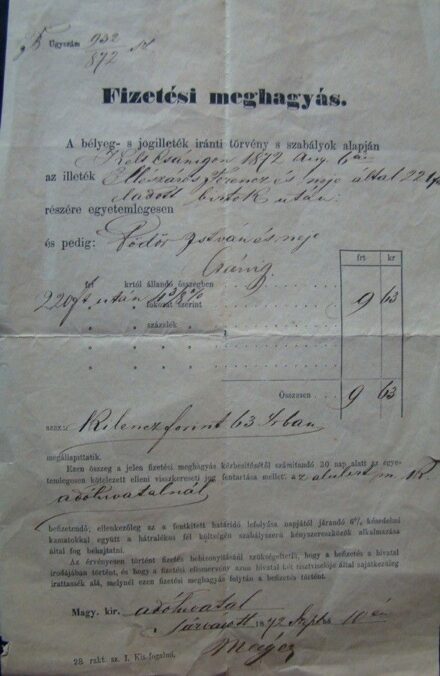 Ügyszám 932
872
Fizetési meghagyás.
A bélyeg- s jogilleték iránti törvény s szabályok alapján
Kelt Csánigon 1872 Aug. 6án
az illeték Ferencz és neje által 220
eladott birtok után
részére egyetemlegesen
és pedig: Ködör István és neje
frt kr
Csánig
frt krtól állandó összegben
220 ft után 4 3/8 % fokozat szerint 9 63
százalék
Összesen 9 63
szaz: Kilencz forint 63 krban
megállapittatik.
Ezen összeg a jelen fizetési meghagyás kézbesitésétől számitandó 30 nap alatt az egye-
temlegesen kötelezett elleni viszkereseti jog fentartása mellet az alulirt m. kir.
adóhivatalnál
befizetendő; ellenkezőleg az a fentkitett határidő lefolyása napjától járandó 6% késedelmi
kamatokkal együtt a hátrálékos fél költségén szabályszerű kényszereszközök alkalmazása
által fog behajtatni.
Az érvényesen történt fizetés bebizonyitásáúl szükségeltetik, hogy a befizetés a hivatal
irodájában történt, és hogy a fizetési elismervény azon hivatal két tisztviselője által sajátkezűleg
irattassék alá, melynél ezen fizetési meghagyás folytán a befizetés történt.
Magy. kir. adóhivatal
Sárvárott 1872 Septb. 10én
28. rakt. sz. I. Kis-fogalmú.